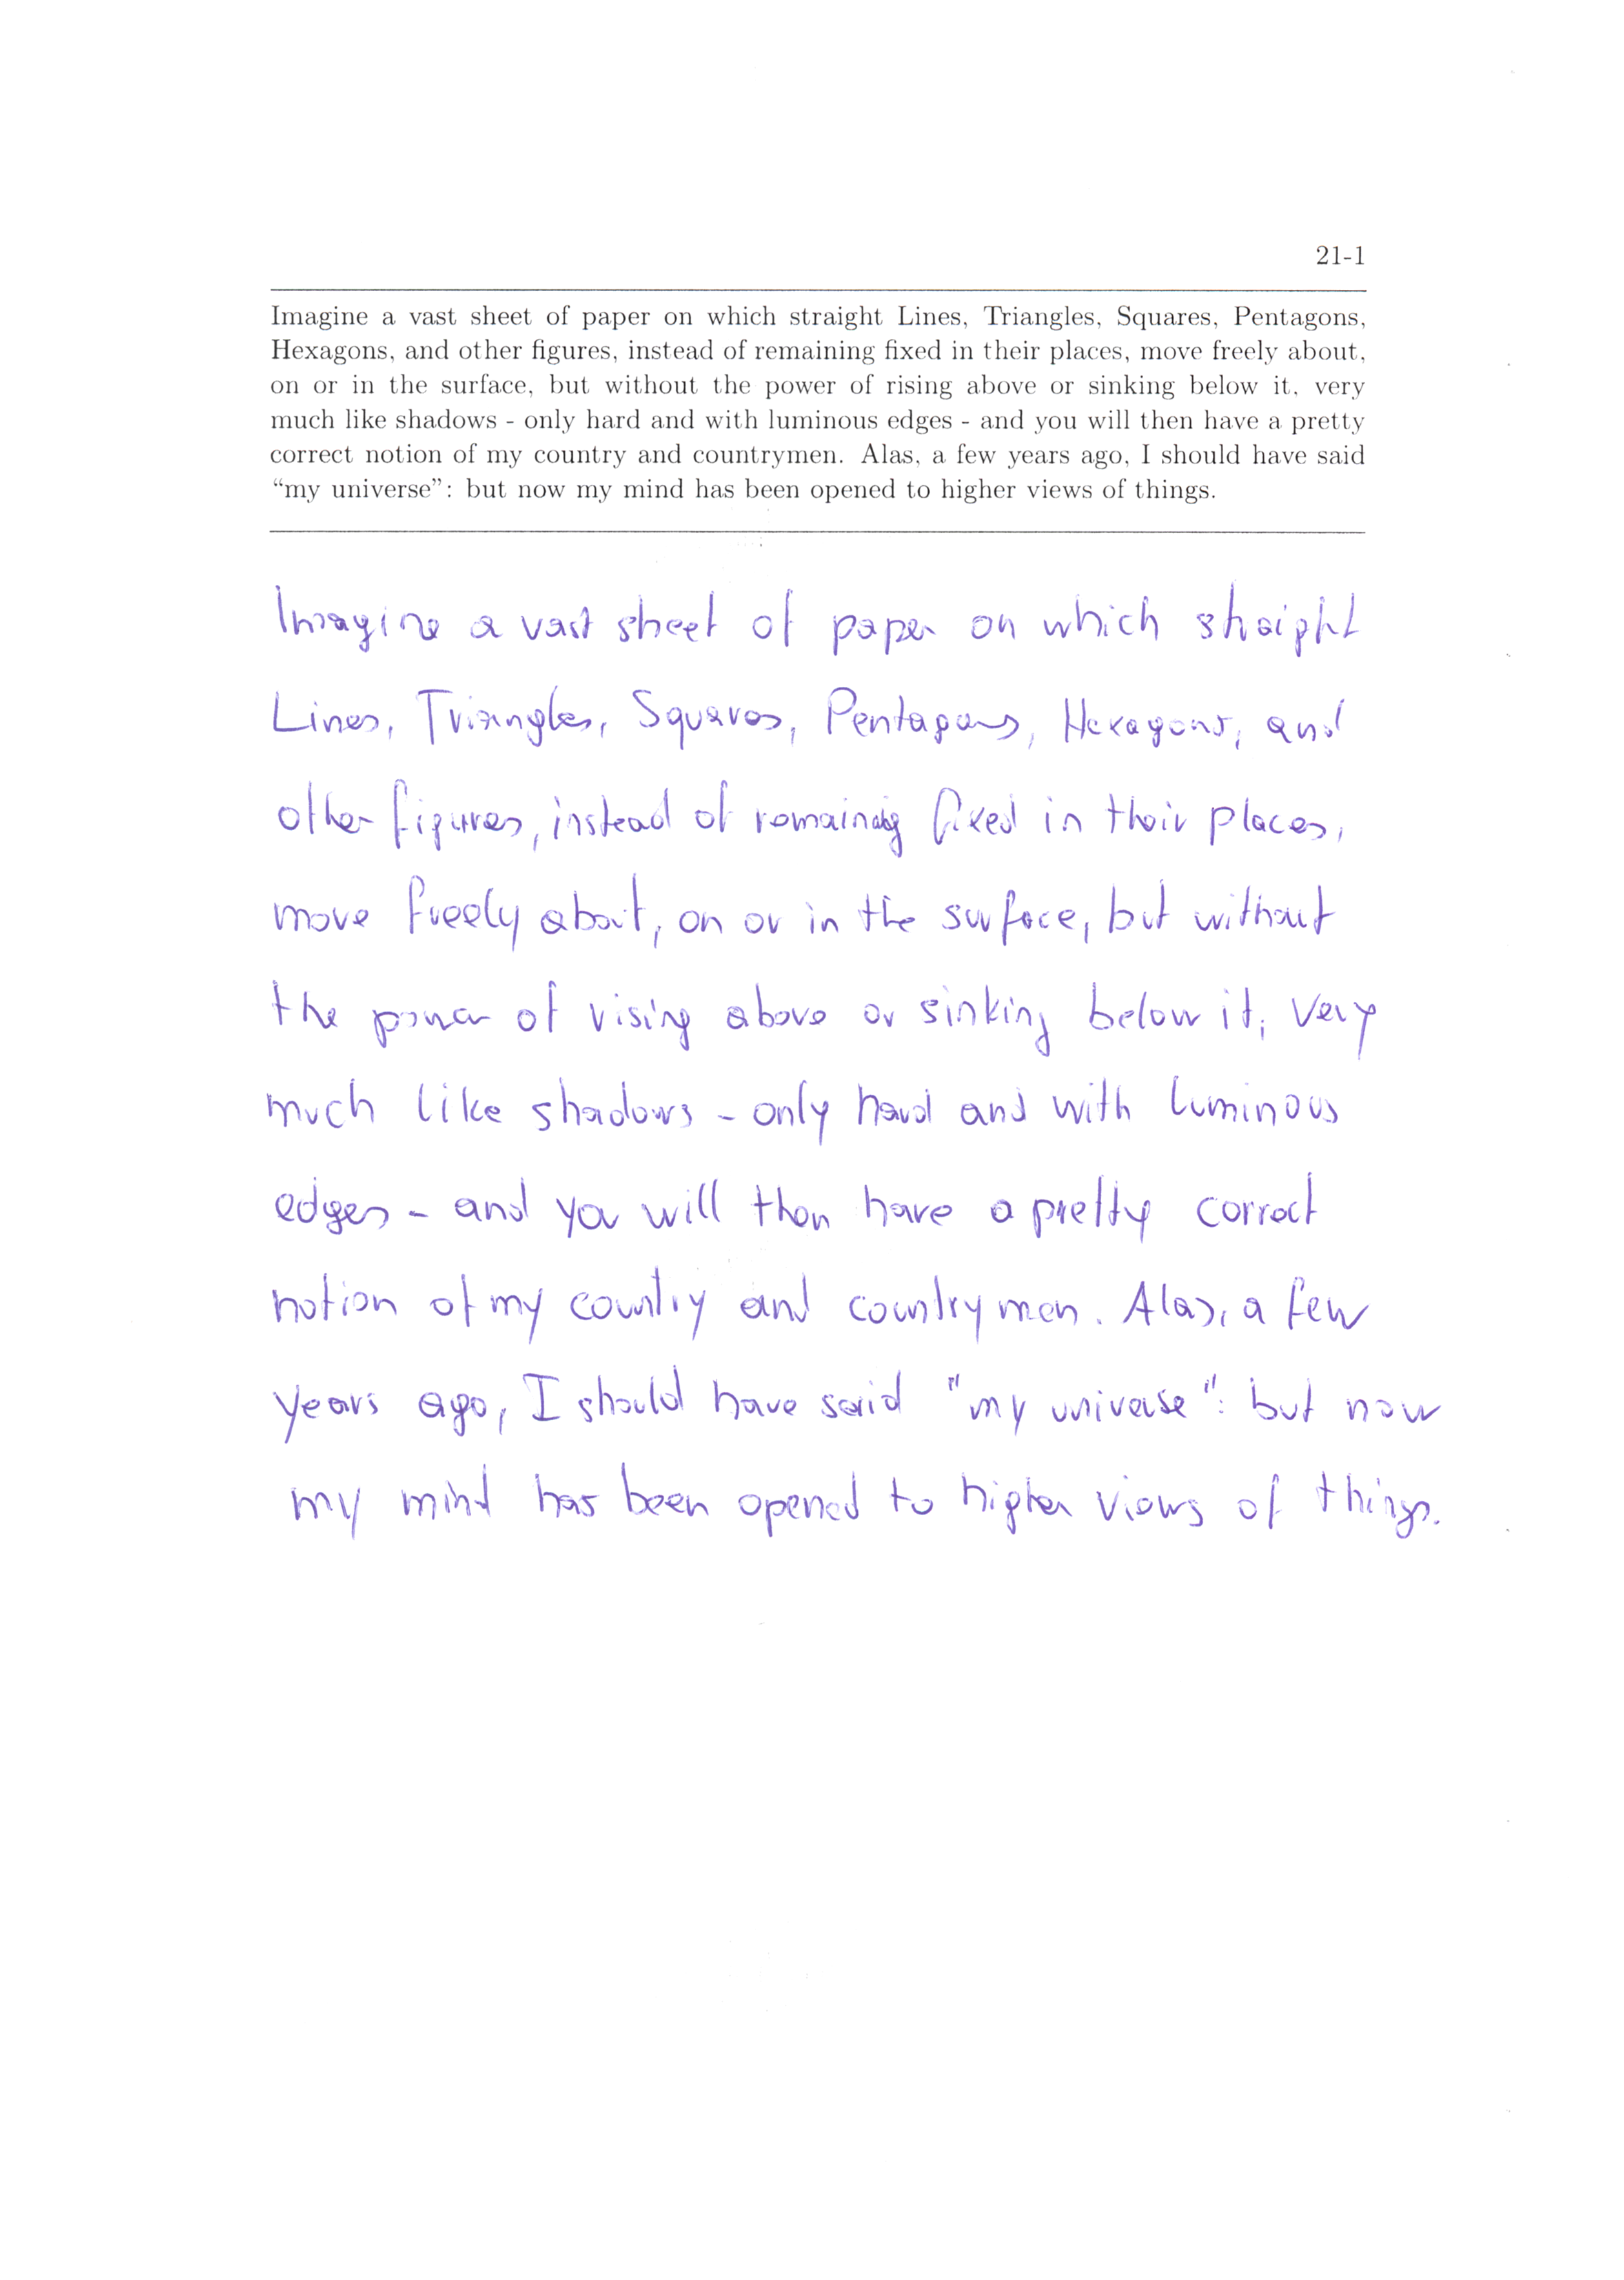 21-1
Imagine a vast sheet of paper on which straight Lines, Triangles, Squares, Pentagons,
Hexagons, and other figures, instead of remaining fixed in their places, move freely about,
on or in the surface, but without the power of rising above or sinking below it, very
much like shadows - only hard and with luminous edges - and you will then have a pretty
correct notion of my country and countrymen. Alas, a few years ago, I should have said
“my universe”: but now my mind has been opened to higher views of things.
Imagine a vast sheet of paper on which straight
Lines, Triangles, Squares, Pentagons, Hexagons, and
other figures, instead of remaining fixed in their places,
move freely about, on or in the surface, but without
the power of rising above or sinking below it, very
much like shadows - only hard and with luminous
edges - and you will then have a pretty correct
notion of my country and countrymen. Alas, a few
years ago, I should have said "my universe": but now
my mind has been opened to higher views of things.